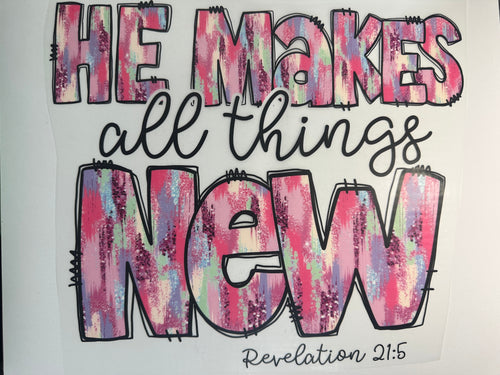 HE MaKES
all things
NeW
Revelation 21:5